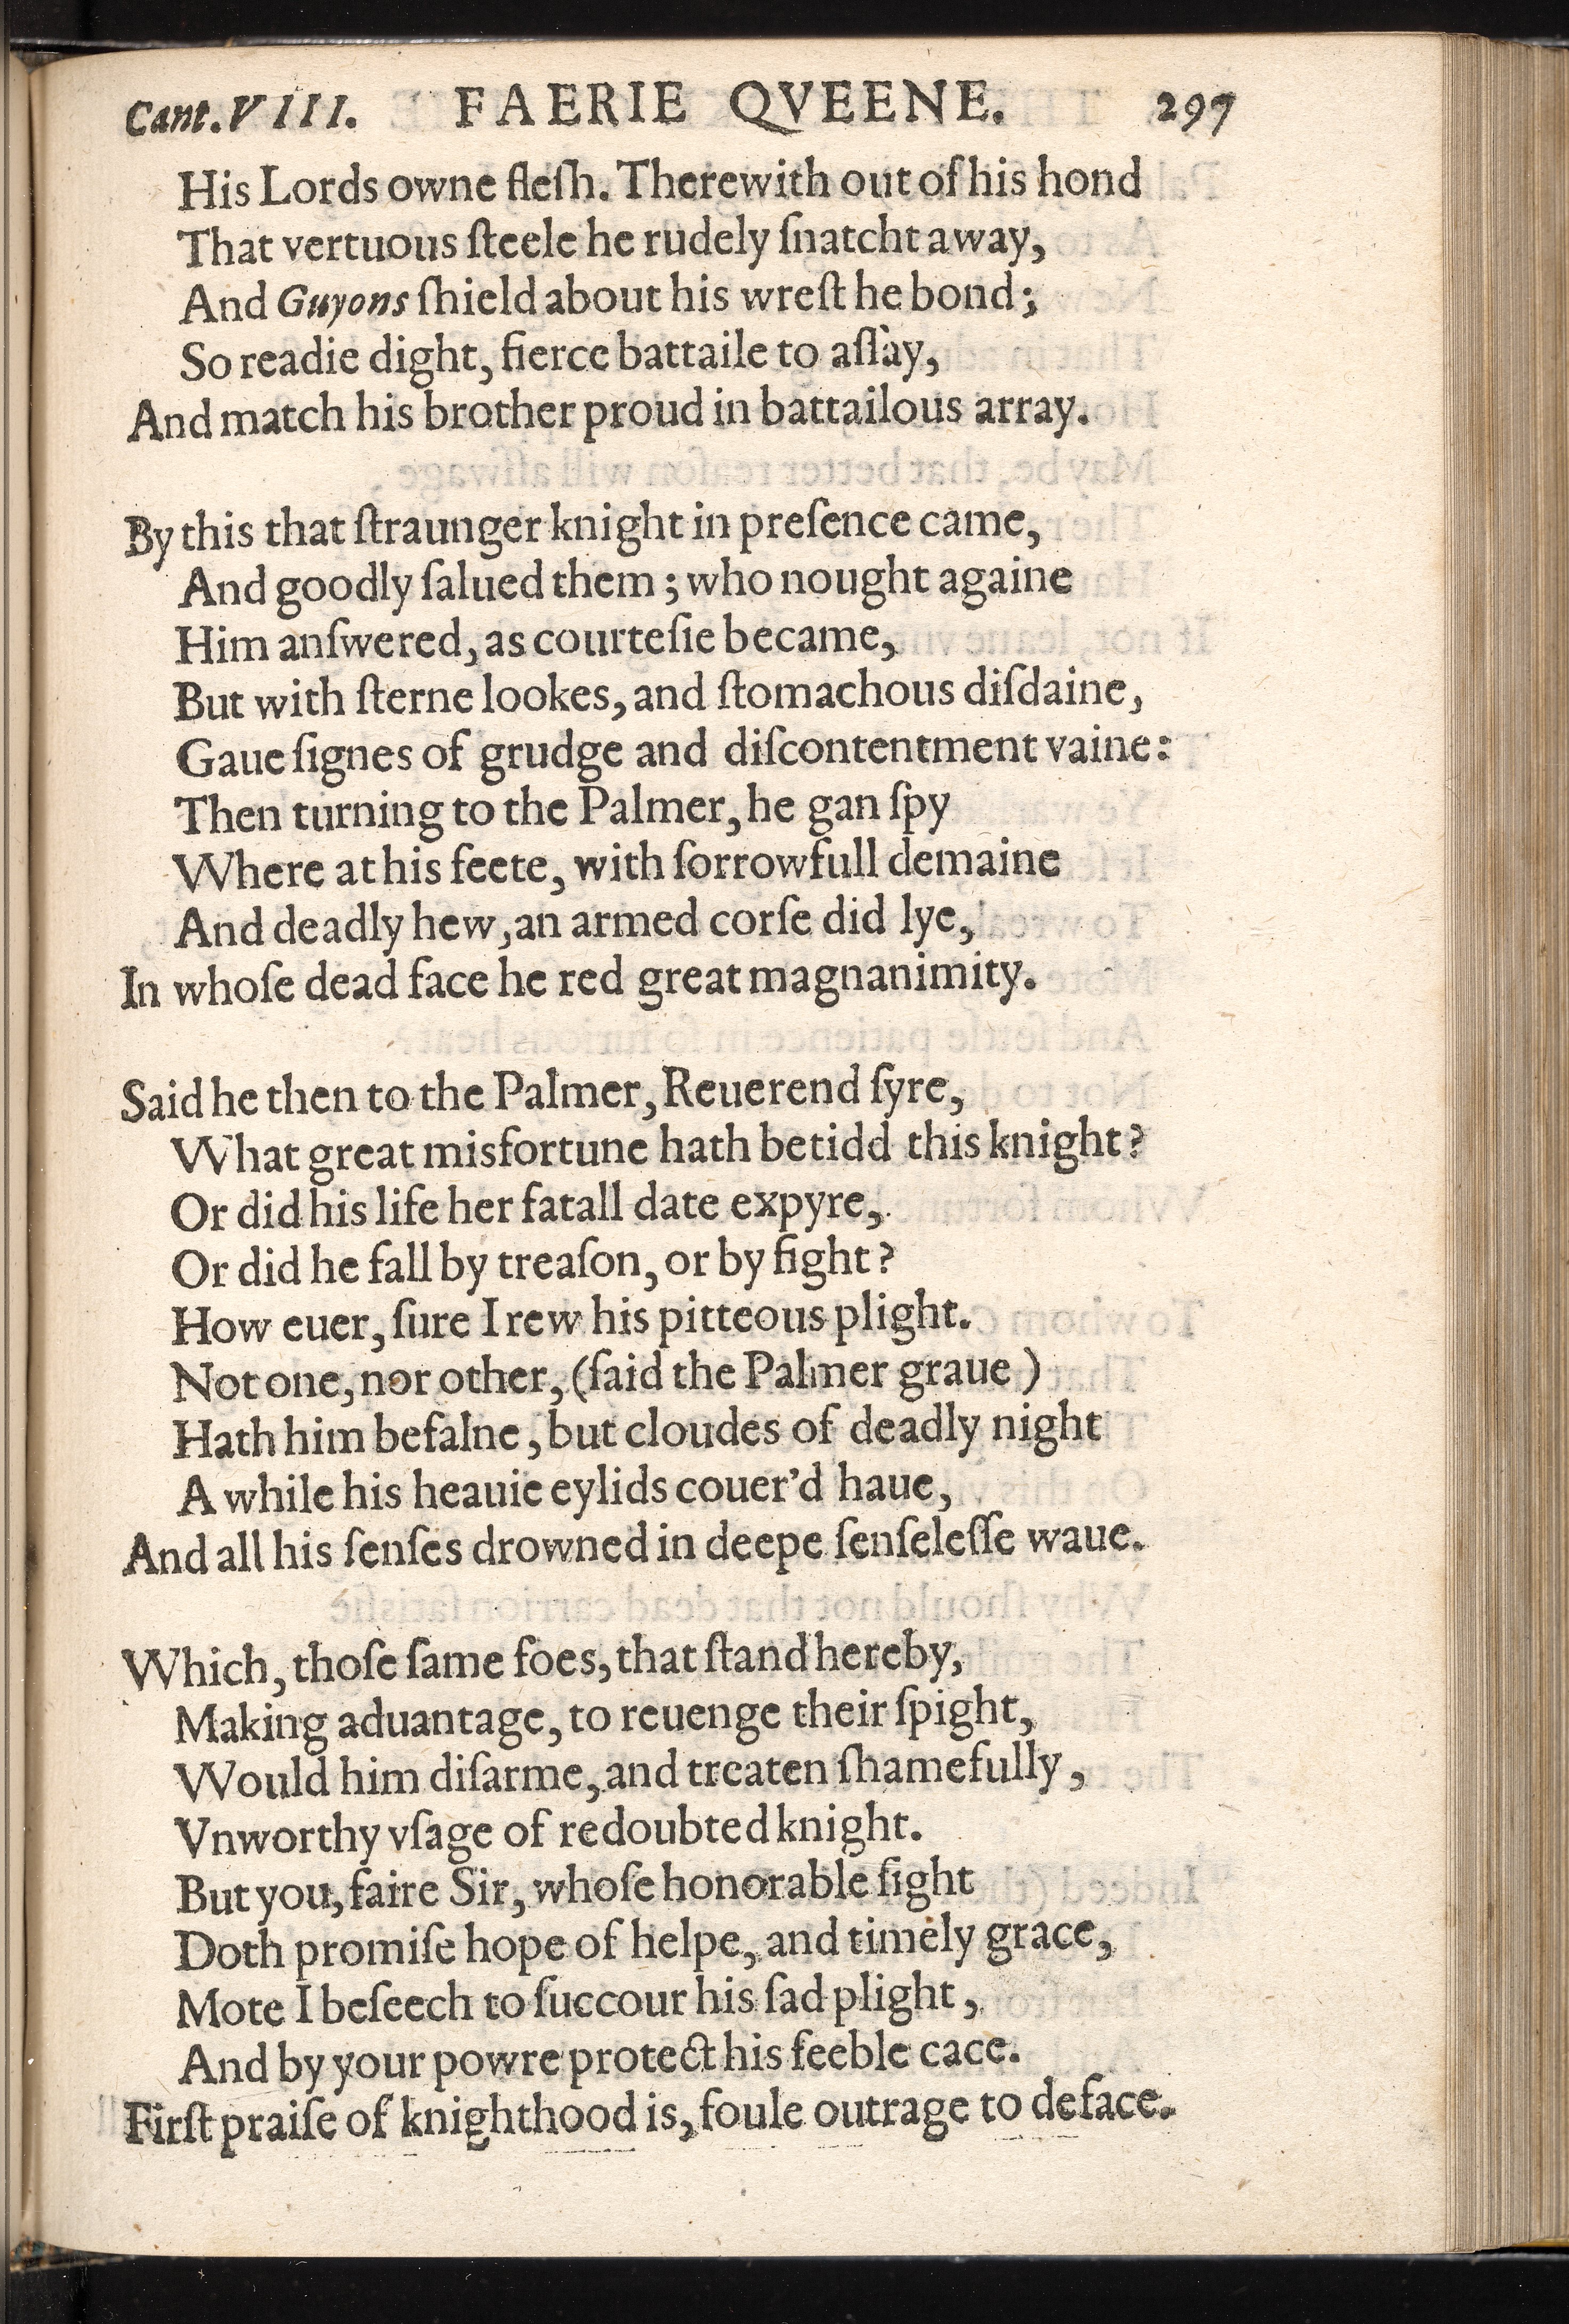 Cant. VIII. FAERIE QVEENE. 297
His Lords owne fleſh. Therewith out of his hond
That vertuous ſteele he rudely ſnatcht away,
And Guyons ſhield about his wreſt he bond;
So readie dight, fierce battaile to aſſay,
And match his brother proud in battailous array.
By this that ſtraunger knight in preſence came,
And goodly ſalued them; who nought againe
Him anſwered, as courteſie became,
But with ſterne lookes, and ſtomachous diſdaine,
Gaue ſignes of grudge and diſcontentment vaine:
Then turning to the Palmer, he gan ſpy
Where at his feete, with ſorrowfull demaine
And deadly hew, an armed corſe did lye,
In whoſe dead face he red great magnanimity.
Said he then to the Palmer, Reuerend ſyre,
What great misfortune hath betidd this knight?
Or did his life her fatall date expyre,
Or did he fall by treaſon, or by fight?
How euer, ſure I rew his pitteous plight.
Not one, nor other, (ſaid the Palmer graue)
Hath him befalne, but cloudes of deadly night
A while his heauie eylids couer'd haue,
And all his ſenſes drowned in deepe ſenſeleſſe waue.
Which, thoſe ſame foes, that ſtand hereby,
Making aduantage, to reuenge their ſpight,
Would him diſarme, and treaten ſhamefully,
Vnworthy vſage of redoubted knight.
But you, faire Sir, whoſe honorable ſight
Doth promiſe hope of helpe, and timely grace,
Mote I beſeech to ſuccour his ſad plight,
And by your powre protect his feeble cace.
Firſt praiſe of knighthood is, foule outrage to deface.